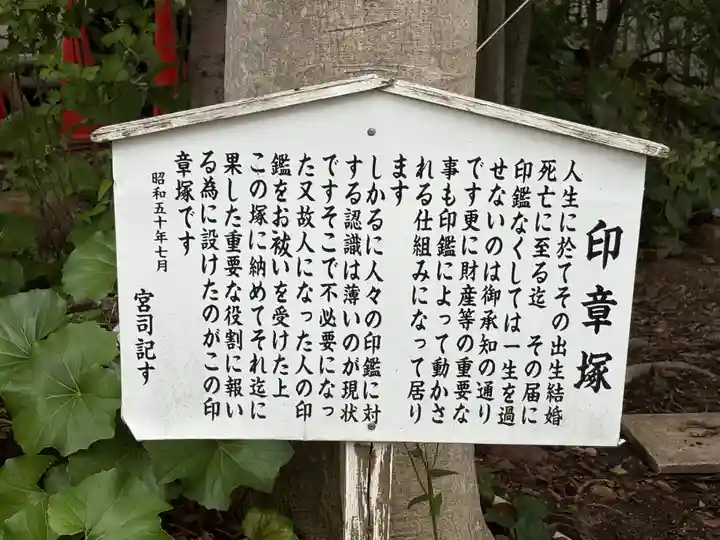 印章塚
人生に於てその出生結婚
死亡に至る迄　その届に
印鑑なくしては一生を過
せないのは御承知の通り
です更に財産等の重要な
事も印鑑によって動かさ
れる仕組みになって居り
ます
しかるに人々の印鑑に対
する認識は薄いのが現状
ですそこで不必要になっ
た又故人になった人の印
鑑をお祓いを受けた上
この塚に納めてそれ迄に
果した重要な役割に報い
る為に設けたのがこの印
章塚です
昭和五十年七月
宮司記す